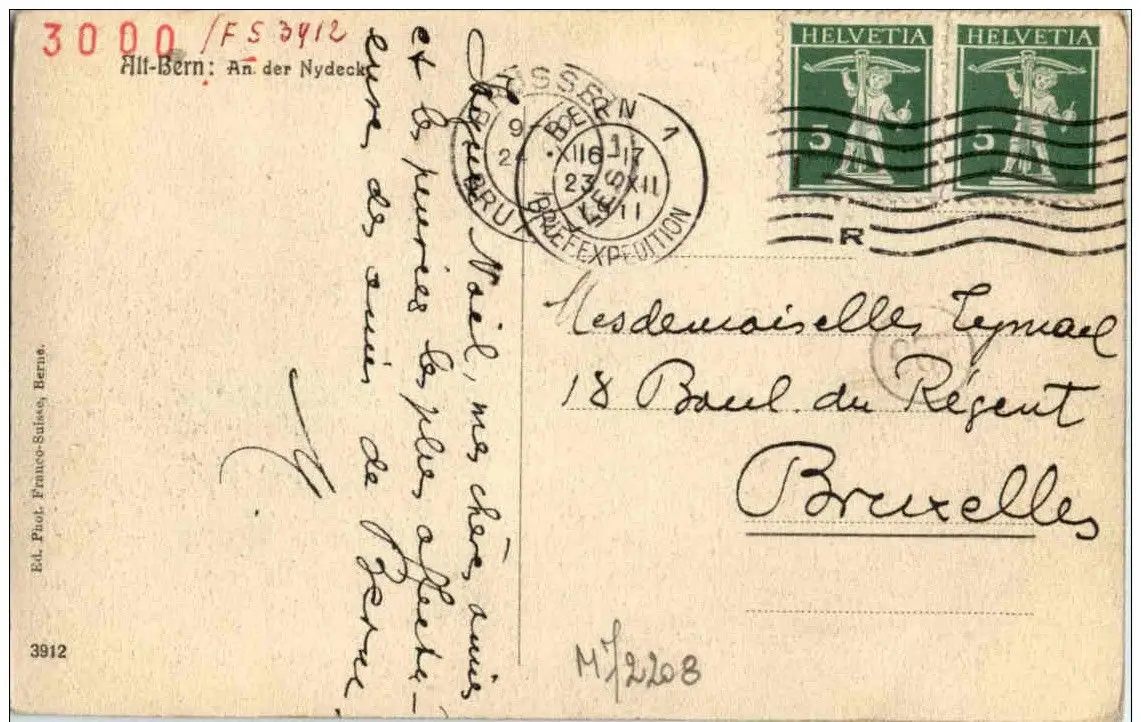 3000 /FS 3912
Alt-Bern: An der Nydeck
HELVETIA HELVETIA
5 5
BERN 1
16-17
23 XII
11
BRIEFEXPEDITION
BRUSSEL
9-
24 XII
R
Joyeux Noël, mes chères amies
et les pensées les plus affectu-
euses des amis de Berne.
M.
Mesdemoiselles
18 Boul. du Régent
Bruxelles
Ed. Phot. Franco-Suisse, Berne.
3912
M7/2208